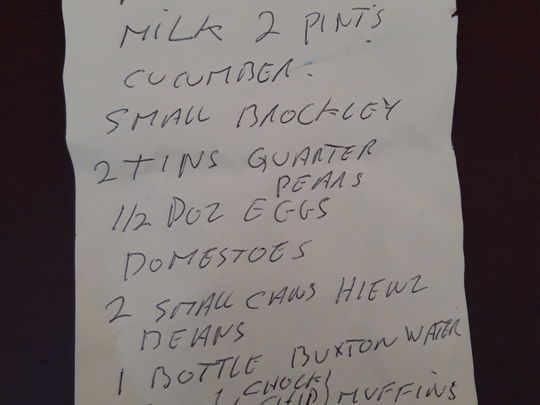 MILK 2 PINTS
CUCUMBER.
SMALL BROCKLEY
2 TINS QUARTER
PEARS
1/2 DOZ EGGS
DOMESTOES
2 SMALL CANS HIENZ
BEANS
1 BOTTLE BUXTON WATER
1 CHOCK
CHIP MUFFINS